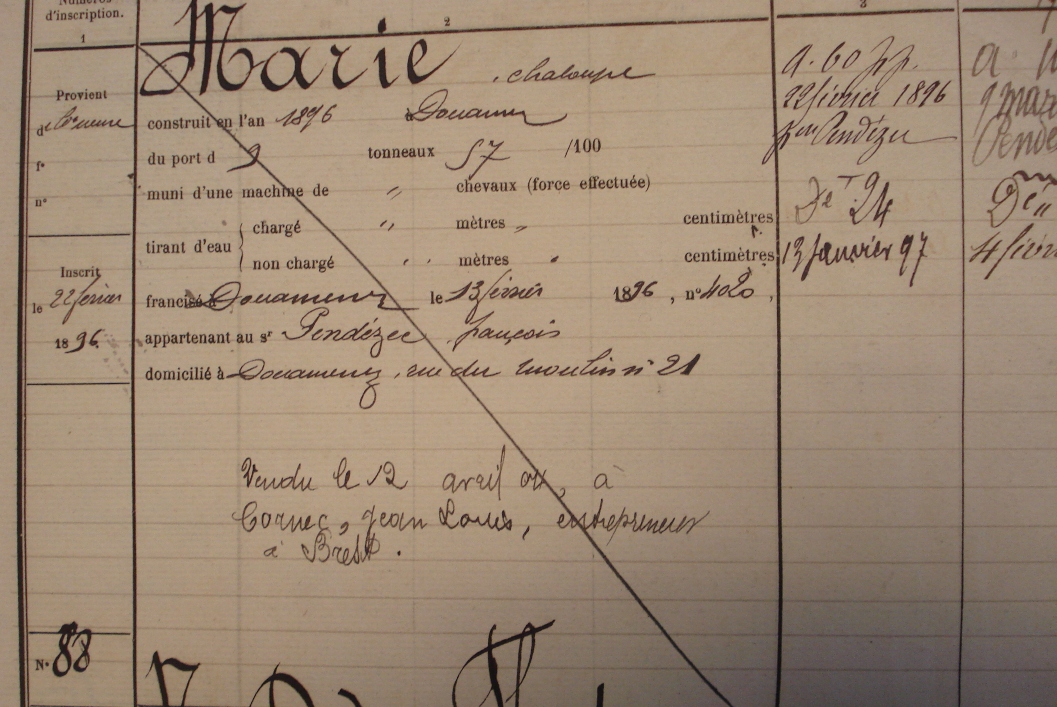 Numéros
d'inscription.
1
2
3
Marie, chaloupe
Provient
d
fº
nº
construit en l'an 1896 à Douarnz
du port d 9 tonneaux 57 /100
muni d'une machine de " chevaux (force effectuée)
tirant d'eau
chargé " mètres " centimètres
non chargé " mètres " centimètres
francisé à Douarnenz le 13 février 1896, nº 4020,
appartenant au sr Pendézec françois
domicilié à Douarnenz, rue du moulin nº 21
Inscrit
le 22 février
1896
Vendu le 12 avril 04, à
Cornec, Jean Louis, entrepreneur
à Brest.
a. 60
22 février 1896
Pendézec
Dé 24
13 Janvier 97
a.
Dé
Nº 88